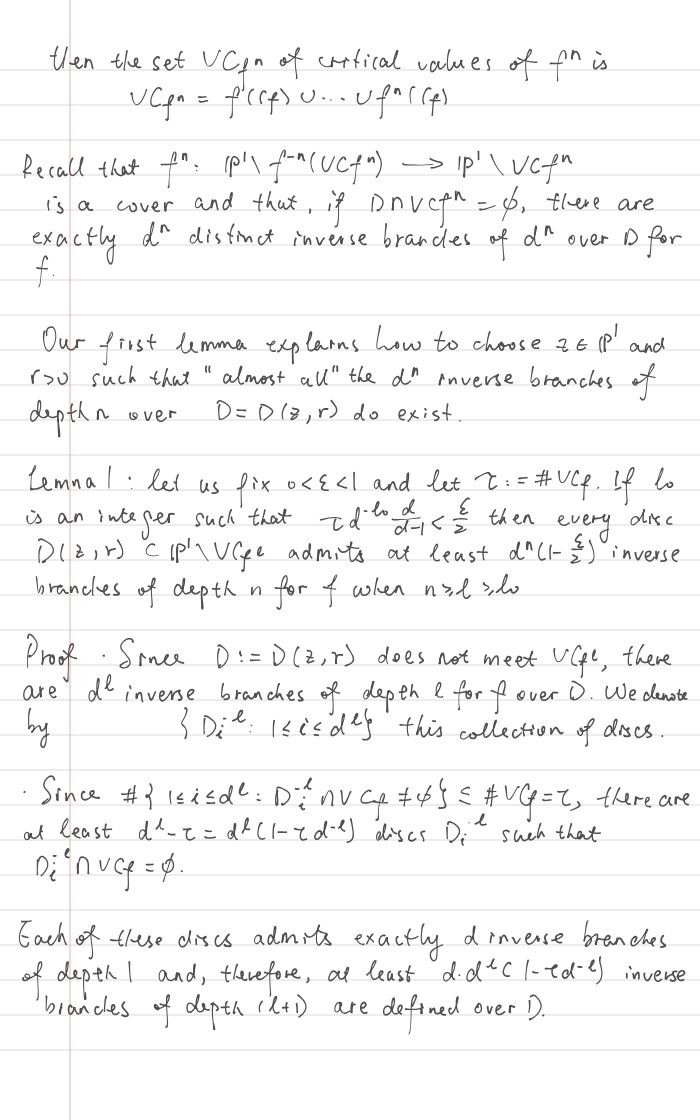 then the set VC_{f^n} of critical values of f^n is
VC_{f^n} = f(C_f) ∪ ... ∪ f^n(C_f)
Recall that f^n : ℙ^1 \ f^{-n}(VC_{f^n}) ⟶ ℙ^1 \ VC_{f^n}
is a cover and that, if D ∩ VC_{f^n} = ∅, there are
exactly d^n distinct inverse branches of d^n over D for
f.
Our first lemma explains how to choose z ∈ ℙ^1 and
r>0 such that "almost all" the d^n inverse branches of
depth n over D = D(z,r) do exist.
Lemma 1 : let us fix 0<ε<1 and let τ := #VC_f. If l_0
is an integer such that τ d^{-l_0} \frac{d}{d-1} < \frac{ε}{2} then every disc
D(z,r) ⊂ ℙ^1 \ VC_{f^l} admits at least d^n(1-\frac{ε}{2}) inverse
branches of depth n for f when n ≥ l ≥ l_0
Proof · Since D := D(z,r) does not meet VC_{f^l}, there
are d^l inverse branches of depth l for f over D. We denote
by { D_i^{-l} : 1≤i≤d^l } this collection of discs.
· Since #{ 1≤i≤d^l : D_i^{-l} ∩ VC_f ≠ ∅ } ≤ #VC_f = τ, there are
at least d^l - τ = d^l(1 - τ d^{-l}) discs D_i^{-l} such that
D_i^{-l} ∩ VC_f = ∅.
Each of these discs admits exactly d inverse branches
of depth 1 and, therefore, at least d·d^l(1 - τ d^{-l}) inverse
branches of depth (l+1) are defined over D.